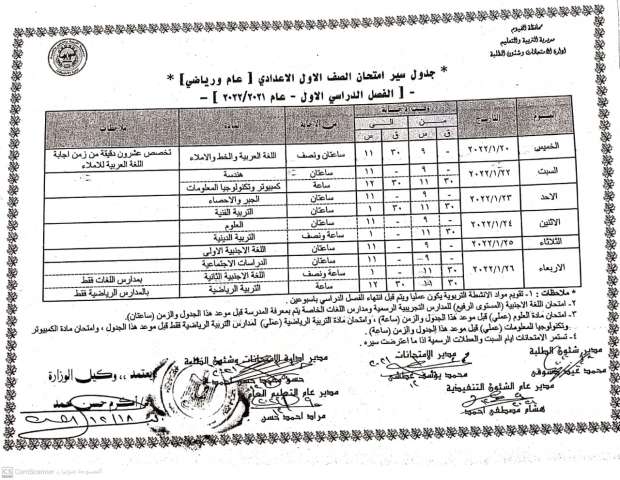 محافظة الفيوم
مديرية التربية والتعليم
إدارة الامتحانات وشئون الطلبة
* جدول سير امتحان الصف الاول الاعدادي [ عام ورياضي ] *
- [ الفصل الدراسي الاول - عام ٢٠٢٢/٢٠٢١ ] -
اليوم التاريخ وقت الاجابة زمن الاجابة المادة ملاحظات
من الى
ق س ق س
الخميس ٢٠٢٢/١/٢٠ - ٩ ٣٠ ١١ ساعتان ونصف اللغة العربية والخط والاملاء تخصص عشرون دقيقة من زمن اجابة اللغة العربية للاملاء
السبت ٢٠٢٢/١/٢٢ - ٩ - ١١ ساعتان هندسة
٣٠ ١١ ٣٠ ١٢ ساعة كمبيوتر وتكنولوجيا المعلومات
الاحد ٢٠٢٢/١/٢٣ - ٩ - ١١ ساعتان الجبر والاحصاء
٣٠ ١١ ٣٠ ١ ساعتان التربية الفنية
الاثنين ٢٠٢٢/١/٢٤ - ٩ - ١١ ساعتان العلوم
٣٠ ١١ - ١ ساعة ونصف التربية الدينية
الثلاثاء ٢٠٢٢/١/٢٥ - ٩ - ١١ ساعتان اللغة الاجنبية الاولى
الاربعاء ٢٠٢٢/١/٢٦ - ٩ - ١١ ساعتان الدراسات الاجتماعية
٣٠ ١١ - ١ ساعة ونصف اللغة الاجنبية الثانية بمدارس اللغات فقط
٣٠ ١١ ٣٠ ١٢ ساعة التربية الرياضية بالمدارس الرياضية فقط
* ملاحظات : ١- تقويم مواد الانشطة التربوية يكون عمليا ويتم قبل انتهاء الفصل الدراسي باسبوعين .
٢- امتحان اللغة الاجنبية (المستوى الرفيع) للمدارس التجريبية الرسمية ومدارس اللغات الخاصة يتم بمعرفة المدرسة قبل موعد هذا الجدول والزمن (ساعتان).
٣- امتحان مادة العلوم (عملي) قبل موعد هذا الجدول والزمن (ساعة) ، وامتحان مادة التربية الرياضية (عملي) لمدارس التربية الرياضية فقط قبل موعد هذا الجدول ، وامتحان مادة الكمبيوتر
وتكنولوجيا المعلومات (عملي) قبل موعد هذا الجدول والزمن (ساعة).
٤- تستمر الامتحانات ايام السبت والعطلات الرسمية اذا ما اعترضت سيره .
مدير شئون الطلبة
مدير الامتحانات
مدير ادارة الامتحانات وشئون الطلبة
يعتمد ،، وكيل الوزارة
محمد يوسف
مدير عام الشئون التنفيذية
هشام مصطفى احمد
مدير عام التعليم العام
مراد احمد حسن
CS CamScanner الممسوحة ضوئيا بـ